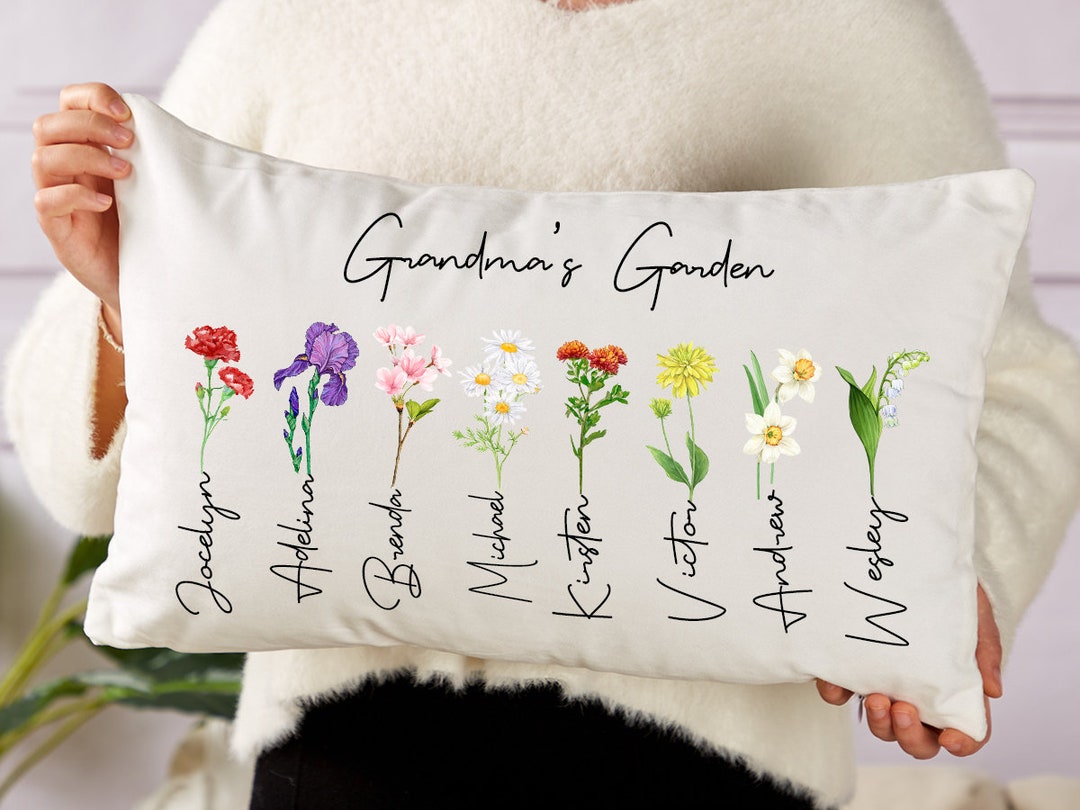 Grandma's Garden
Jocelyn
Adelina
Brenda
Michael
Kirsten
Victor
Andrew
Wesley